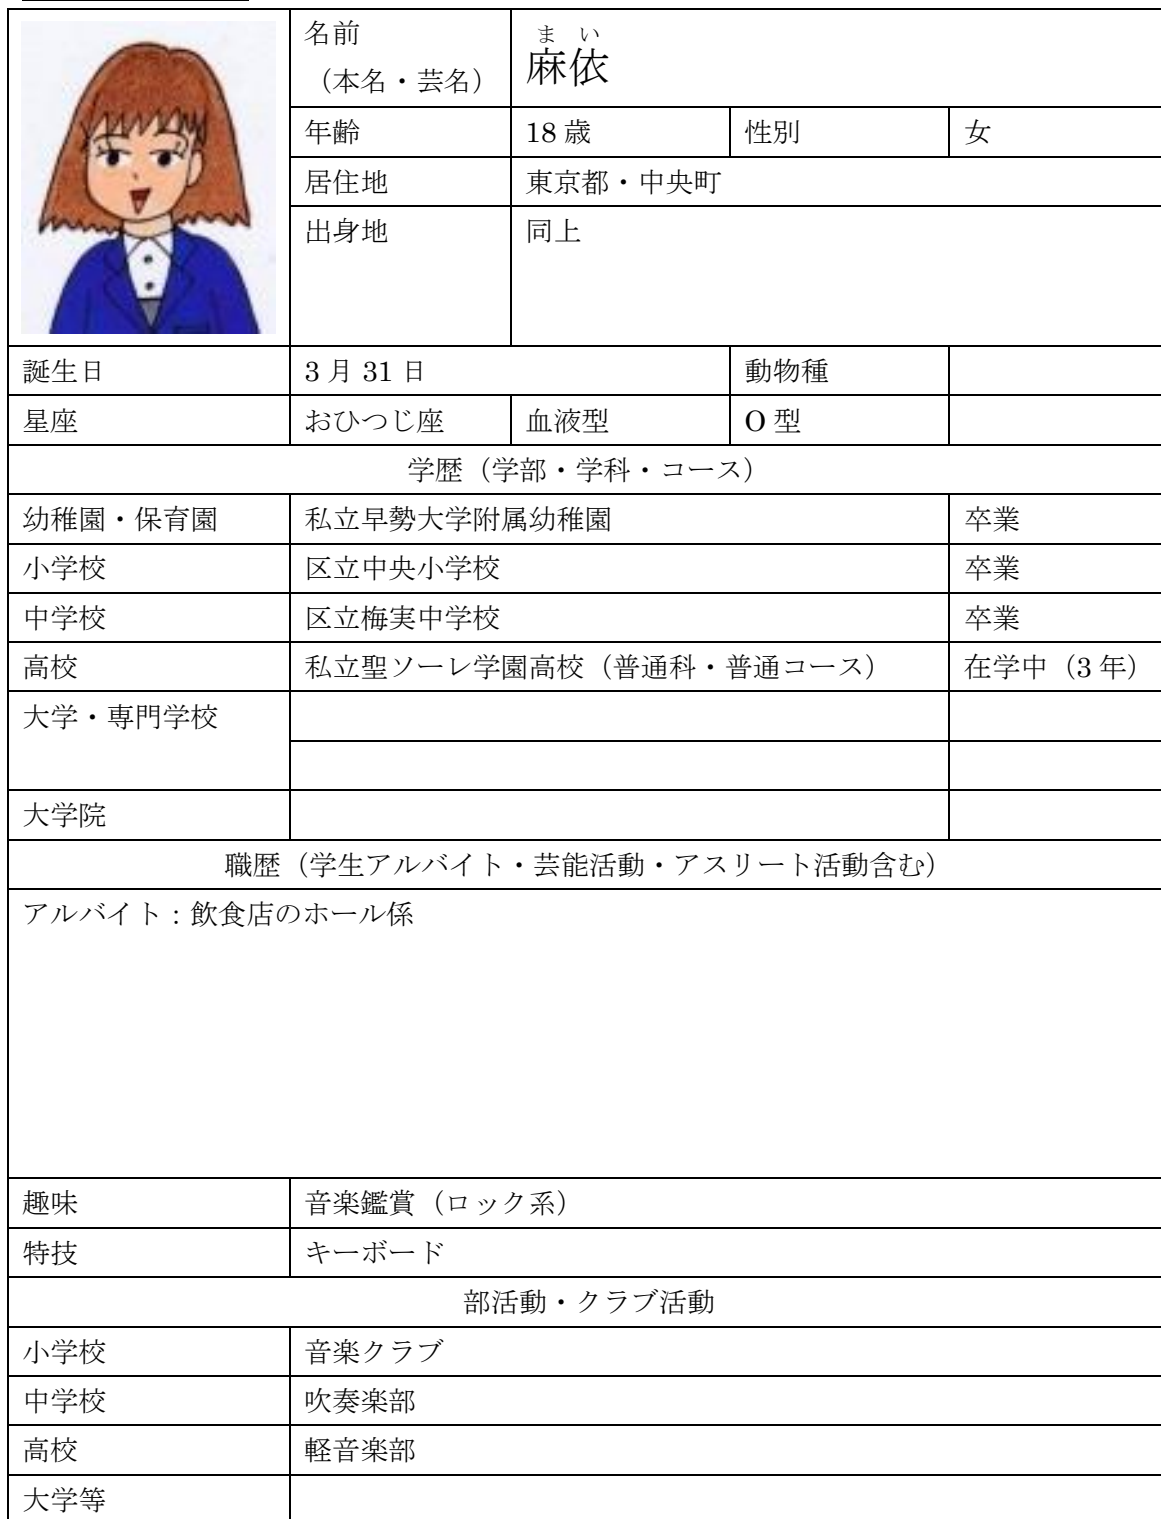 名前 まい
（本名・芸名） 麻依
年齢 18歳 性別 女
居住地 東京都・中央町
出身地 同上
誕生日 3月31日 動物種
星座 おひつじ座 血液型 O型
学歴（学部・学科・コース）
幼稚園・保育園 私立早勢大学附属幼稚園 卒業
小学校 区立中央小学校 卒業
中学校 区立梅実中学校 卒業
高校 私立聖ソーレ学園高校（普通科・普通コース） 在学中（3年）
大学・専門学校
大学院
職歴（学生アルバイト・芸能活動・アスリート活動含む）
アルバイト：飲食店のホール係
趣味 音楽鑑賞（ロック系）
特技 キーボード
部活動・クラブ活動
小学校 音楽クラブ
中学校 吹奏楽部
高校 軽音楽部
大学等